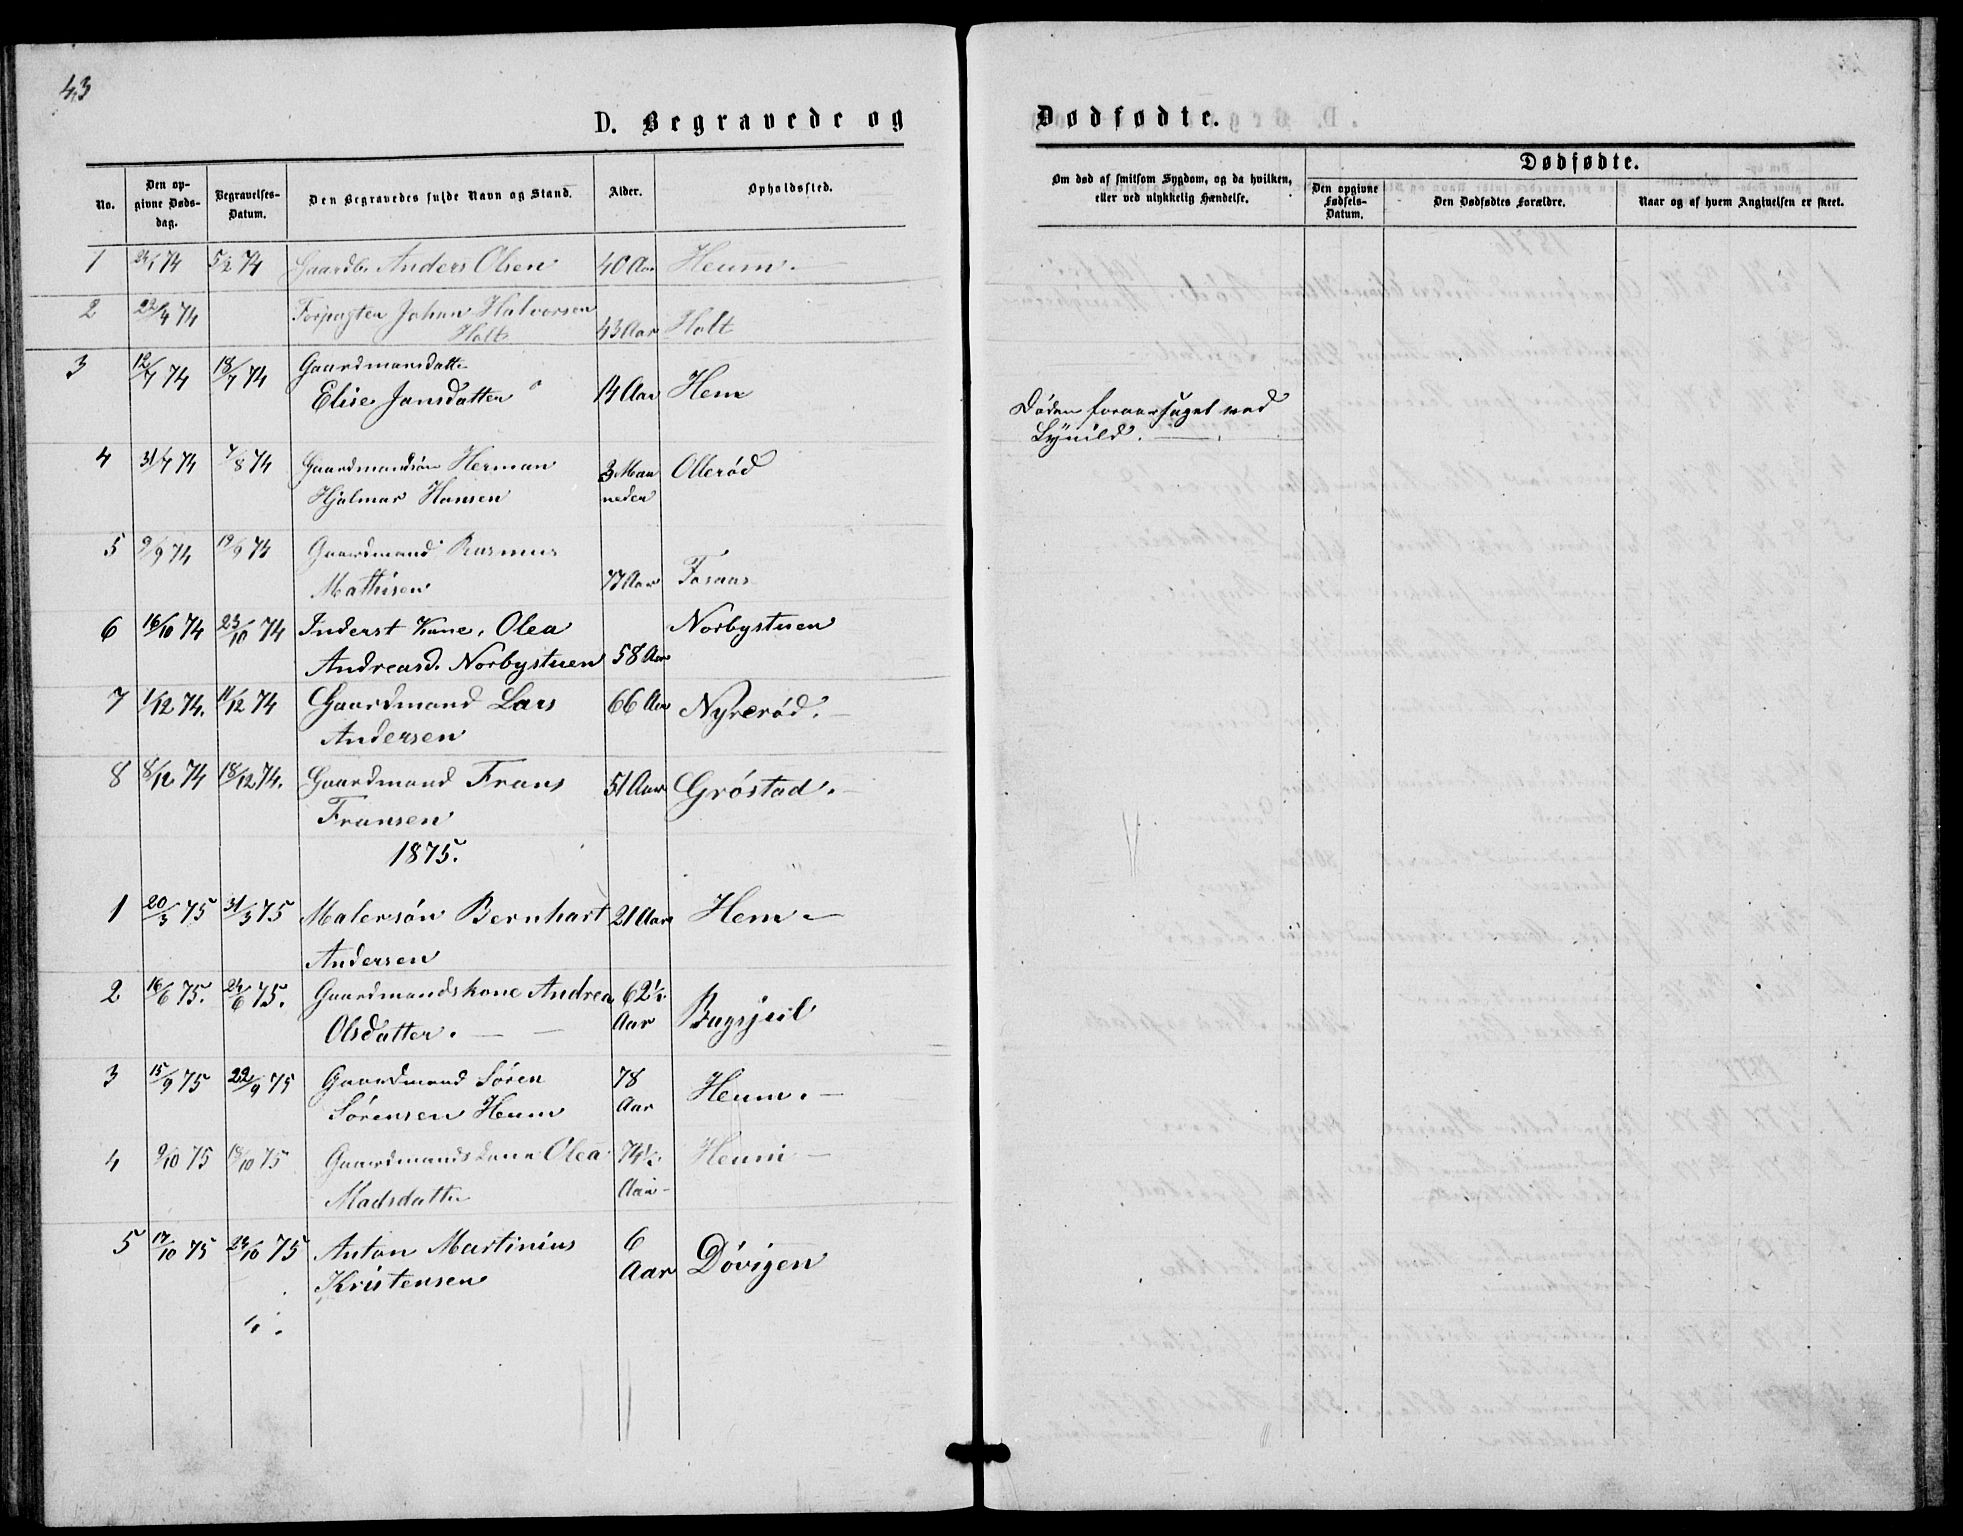 43
D. Begravede og
Dødfødte.
No.
Den op-
givne Døds-
dag.
Begravelses-
Datum.
Den Begravedes fulde Navn og Stand.
Alder.
Opholdssted.
Om død af smitsom Sygdom, og da hvilken,
eller ved ulykkelig Hændelse.
Dødfødte.
Den opgivne
Fødsels-
Datum.
Den Dødfødtes Forældre.
Naar og af hvem Angivelsen er skeet.
1 24/1 74 5/2 74 Gaardb. Anders Olsen 40 Aar Heum. —
2 22/4 74 Forpagter Johan Halvorsen
Holt 43 Aar Holt
3 12/7 74 18/7 74 Gaardmansdatter
Elise Jansdatter 14 Aar Hem
Døden foraarsaget ved
Lynild. —
4 31/7 74 7/8 74 Gaardmandsøn Herman 3 Maa Ollerød
Hjalmar Hansen neder
5 9/9 74 19/9 74 Gaardmand Rasmus
Mathisen 77 Aar Fosaas
6 16/10 74 23/10 74 Inderst Kone, Olea Norbystuen
Andreasd. Norbystuen 58 Aar
7 1/12 74. 11/12 74 Gaardmand Lars 66 Aar Nyrerød. —
Andersen
8 8/12 74 18/12 74. Gaardmand Frans 51 Aar Grøstad. —
Fransen
1875.
1 20/3 75 31/3 75 Malersøn Bernhart 21 Aar Hem —
Andersen
2 16/6 75. 24/6 75. Gaardmandskone Andrea 62½
Olsdatter. — Aar
3 15/9 75 22/9 75 Gaardmand Sören 78 Heum. —
Sörensen Heum Aar
4 9/10 75 19/10 75 Gaardmandskone Olea 74½ Heum —
Madsdatter Aar —
5 17/10 75 24/10 75 Anton Martinius 6 Døvigen
Kristensen Aar